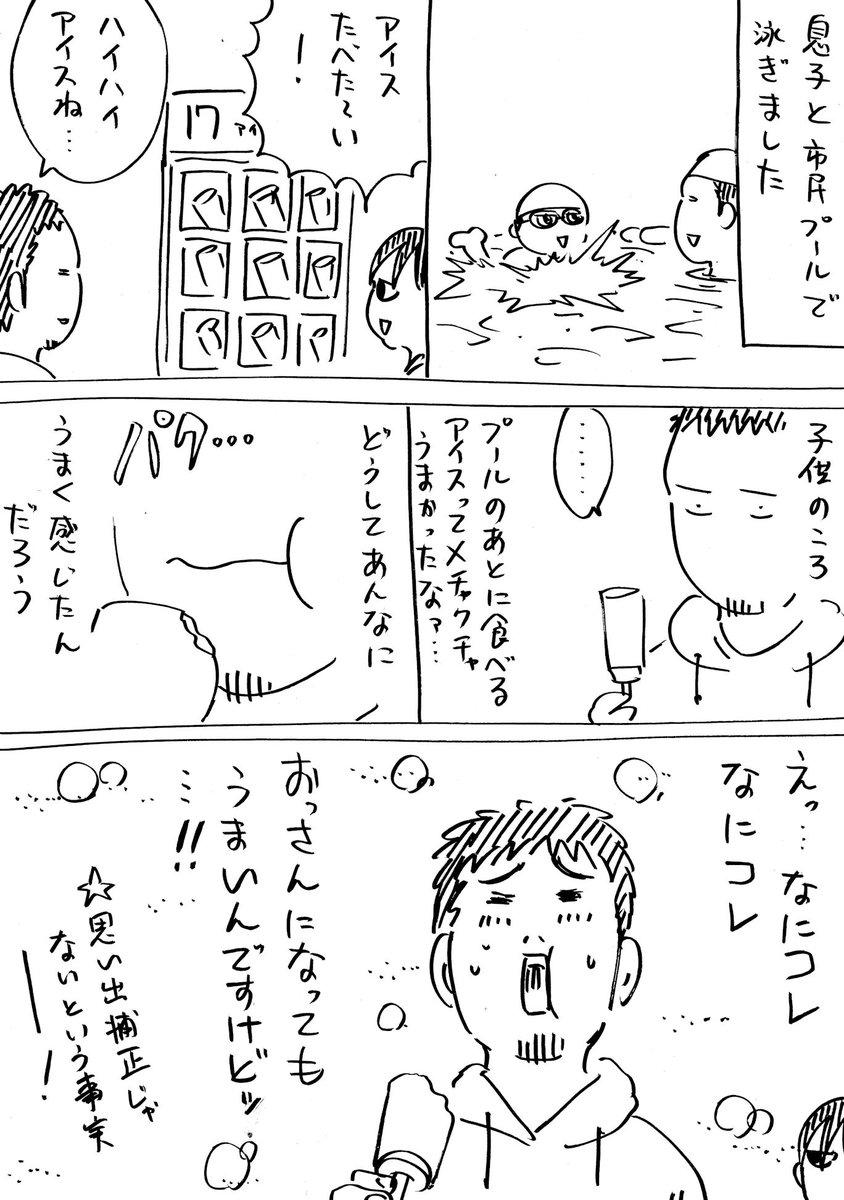 息子と市民プールで
泳ぎました
アイス
たべた〜い
！
17
アイ
ハイハイ
アイスね…
子供のころ
……
プールのあとに食べる
アイスってメチャクチャ
うまかったなァ…
どうしてあんなに
パク…
うまく感じたん
だろう
えっ…なにコレ
なにコレ
おっさんになっても
うまいんですけどッ
…!!
☆思い出補正じゃ
ないという事実
ー！